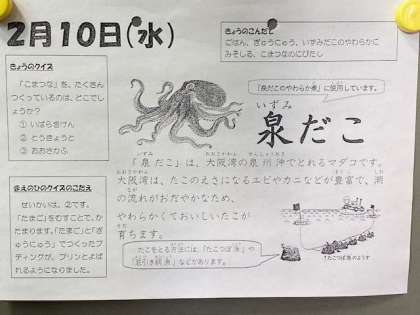 2月10日(水)
きょうのこんだて
ごはん、ぎゅうにゅう、いずみだこのやわらかに
みそしる、こまつなのにびたし
きょうのクイズ
「こまつな」を、たくさん
つくっているのは、どこでし
ょうか?
① いばらきけん
② とうきょうと
③ おおさかふ
まえのひのクイズのこたえ
せいかいは、②です。
「たまご」をむすことで、か
たまります。「たまご」と「ぎ
ゅうにゅう」でつくったプ
ディングが、プリンとよば
れるようになりました。
「泉だこのやわらか煮」に使用しています。
いずみ
泉だこ
いずみ おおさかわん せんしゅうおき
「泉だこ」は、大阪湾の泉州沖でとれるマダコです。
おおさかわん ほうふ しお
大阪湾は、たこのえさになるエビやカニなどが豊富で、潮
なが
の流れがおだやかなため、
やわらかくておいしいたこが
そだ
育ちます。
たこをとる方法には、「たこつぼ漁」や
「底引き網漁」などがあります。
↑たこつぼ漁のようす